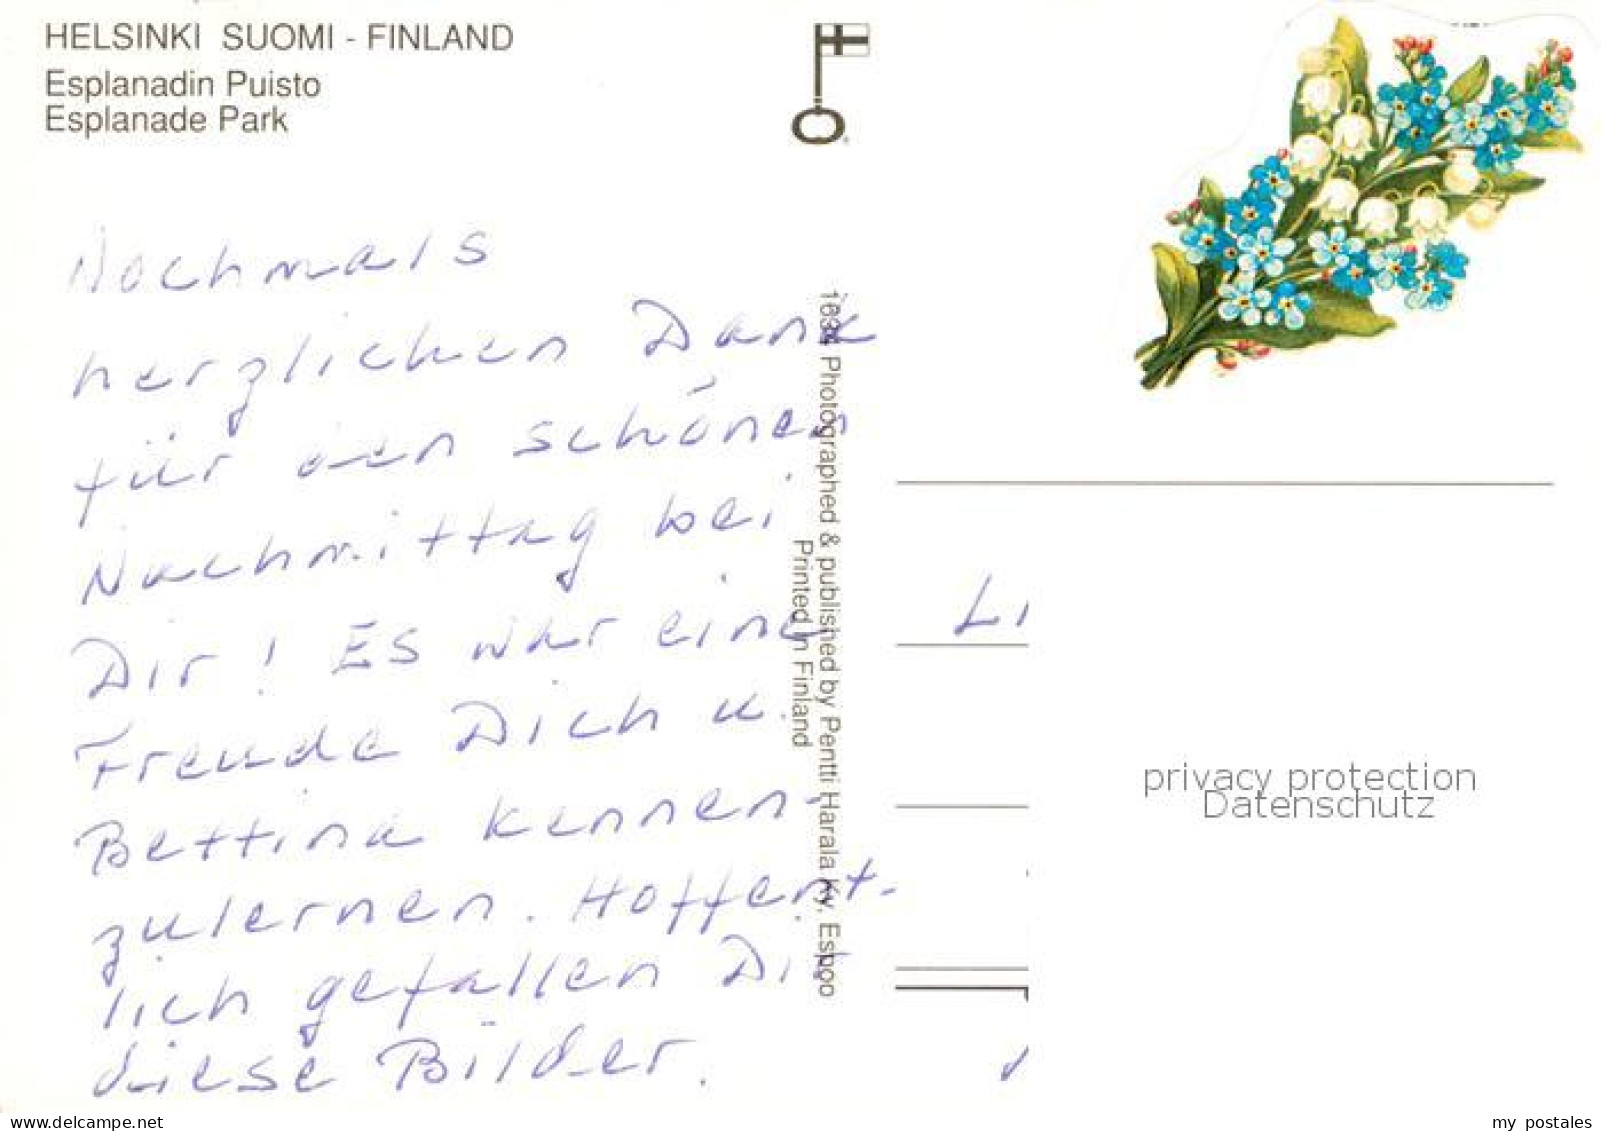 HELSINKI SUOMI - FINLAND
Esplanadin Puisto
Esplanade Park
Nochmals
herzlichen Dank
für den schönen
Nachmittag bei
Dir! Es war eine
Freude Dich u.
Bettina kennen-
zulernen. Hoffent-
lich gefallen Dir
diese Bilder.
Photographed & published by Pentti Harala Ky, Espoo
Printed in Finland
Li
privacy protection
Datenschutz
delcampe.net
my_postales